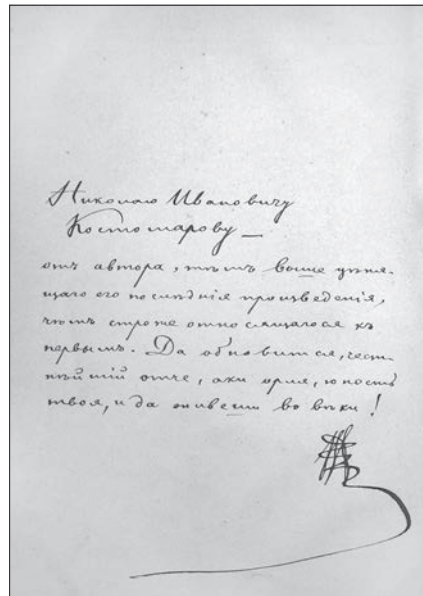 Николаю Ивановичу
Костомарову —
отъ автора, тѣмъ выше цѣня-
щаго его послѣднія произведенія,
чѣмъ строже относящагося къ
первымъ. Да обновится, чест-
нѣйшій отче, аки орля, юность
твоя, и да живеши во вѣки!